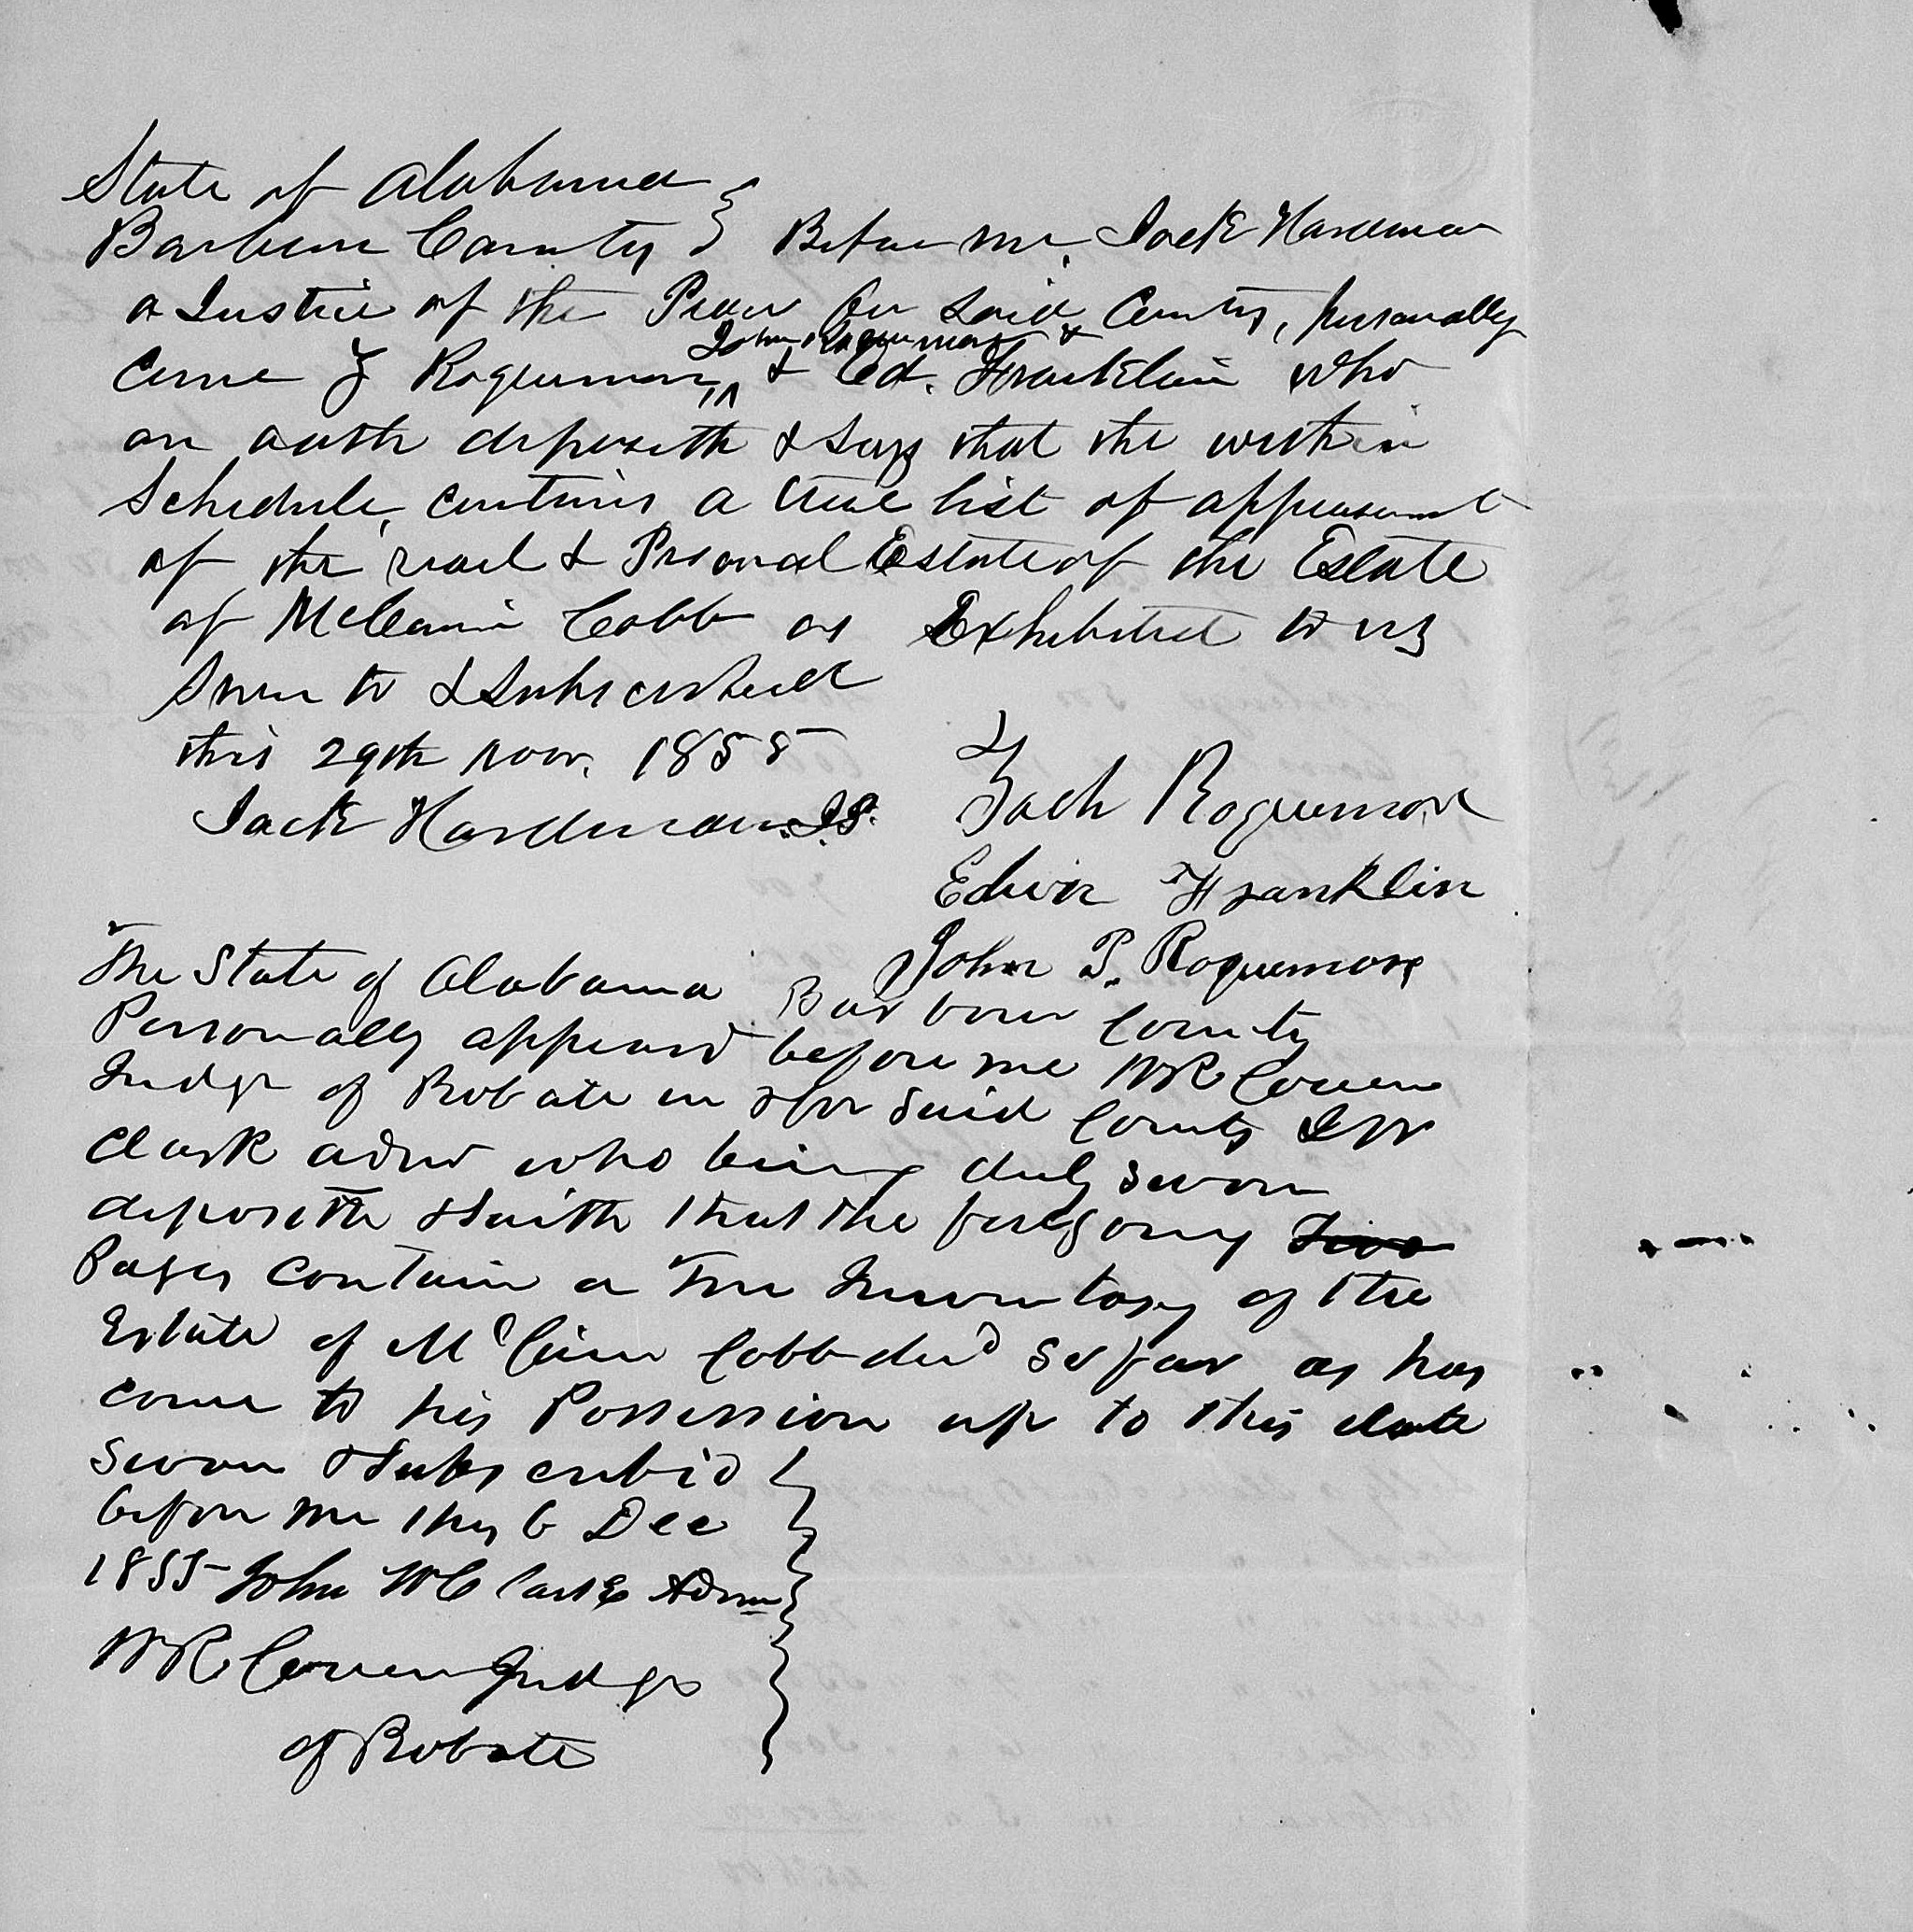 State of Alabama
Barbour County } Before me, Jack Hardman
a Justice of the Peace for said County, personally
came Z Roquemore, John Roquemore & & Ed. Franklin who
on oath deposeth & says that the within
Schedule, contains a true list of appraisment
of the real & Personal Estate of the Estate
of McCain Cobb as Exhibited to us
Sworn to & Subscribed
this 29th Nov. 1855
Jack Hardman J.P. Zach Roquemore
Edwin Franklin
John P. Roquemore
The State of Alabama Barbour County
Personally appeard before me WR Cowen
Judge of Probate in & for said County J W
Clark admr who being duly sworn
deposeth & saith that the foregoing Two
Pages contain a True Inventory of the
Estate of McCain Cobb decd so far as has
come to his Possession up to this date
Sworn & Subscribed
before me this 6 Dec
1855 John W Clark Admr
WR Cowen Judge
of Probate